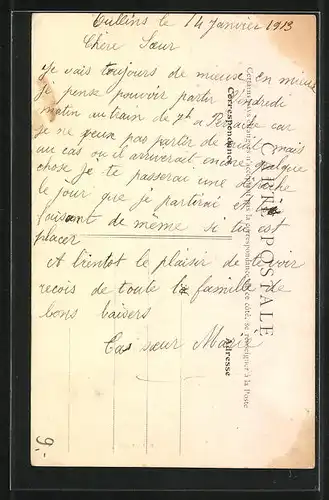 Tullins le 14 Janvier 1913
Chère Sœur
Je vais toujours de mieux en mieux
je pense pouvoir partir Vendredi
matin au train de 7h a car
je ne veux pas partir de nuit mais
au cas ou il arriverait encore quelque
chose je te passerai une dépêche
le jour que je partirai en
faisant de même si tu est
placer
A bientot le plaisir de te voir
recois de toute la famille de
bons baisers
Ta sœur Marie
9.-
CARTE POSTALE
Correspondance
Adresse